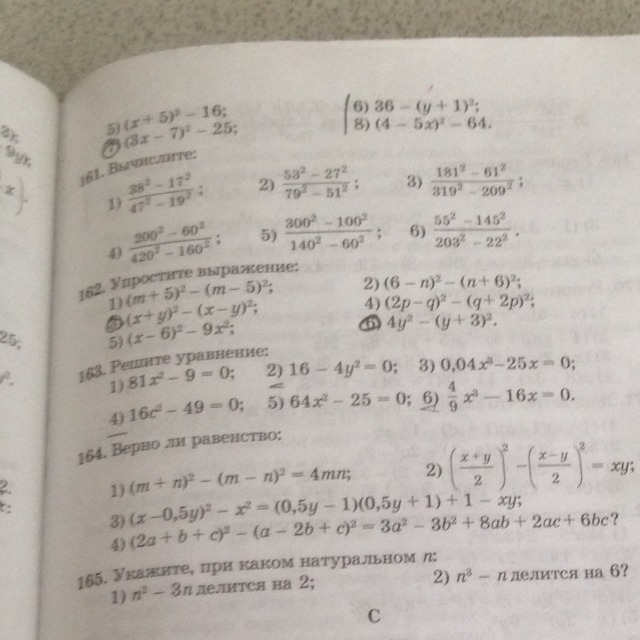 5) (x + 5)² − 16;
6) 36 − (y + 1)²;
(3x − 7)² − 25;
8) (4 − 5x)² − 64.
161. Вычислите:
1) (38² − 17²)/(47² − 19²);
2) (53² − 27²)/(79² − 51²);
3) (181² − 61²)/(319² − 209²);
4) (200² − 60²)/(420² − 160²);
5) (300² − 100²)/(140² − 60²);
6) (55² − 145²)/(203² − 22²).
162. Упростите выражение:
1) (m + 5)² − (m − 5)²;
2) (6 − n)² − (n + 6)²;
(x + y)² − (x − y)²;
4) (2p − q)² − (q + 2p)²;
5) (x − 6)² − 9x²;
6) 4y² − (y + 3)².
163. Решите уравнение:
1) 81x² − 9 = 0; 2) 16 − 4y² = 0; 3) 0,04x³ − 25x = 0;
4) 16c² − 49 = 0; 5) 64x² − 25 = 0; 6) 4/9 x³ − 16x = 0.
164. Верно ли равенство:
1) (m + n)² − (m − n)² = 4mn;
2) ((x + y)/2)² − ((x − y)/2)² = xy;
3) (x − 0,5y)² − x² = (0,5y − 1)(0,5y + 1) + 1 − xy;
4) (2a + b + c)² − (a − 2b + c)² = 3a² − 3b² + 8ab + 2ac + 6bc?
165. Укажите, при каком натуральном n:
1) n² − 3n делится на 2;
2) n³ − n делится на 6?
С